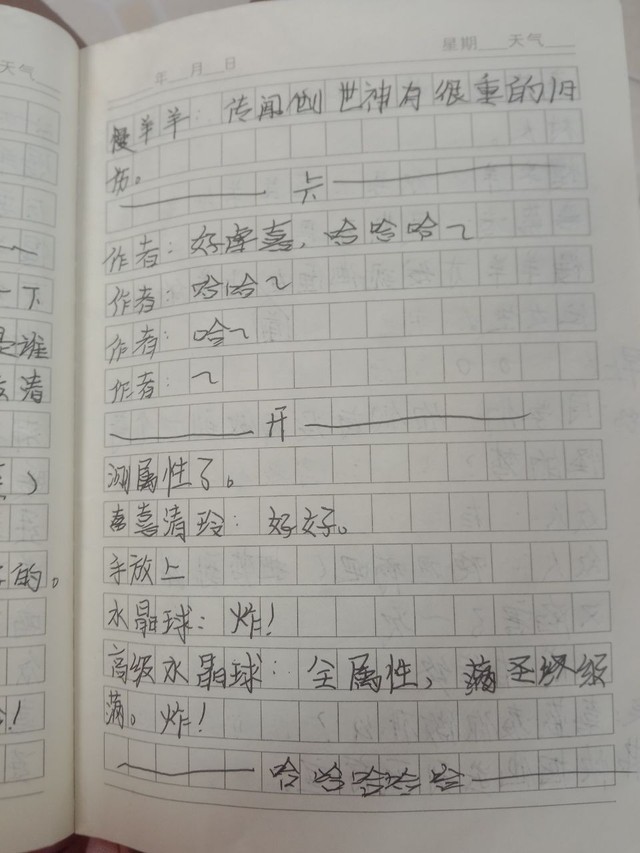 天气
年 月 日 星期 天气
慢羊羊：传闻创世神有很重的旧
伤。
六
作者：好库嘉，哈哈哈~
作者：哈哈~
作者：哈~
作者：~
开
测属性了。
嘉清玲：好好。
手放上
水晶球：炸！
高级水晶球：全属性，圣级
满。炸！
哈哈哈哈哈
一下
是谁
清
的。